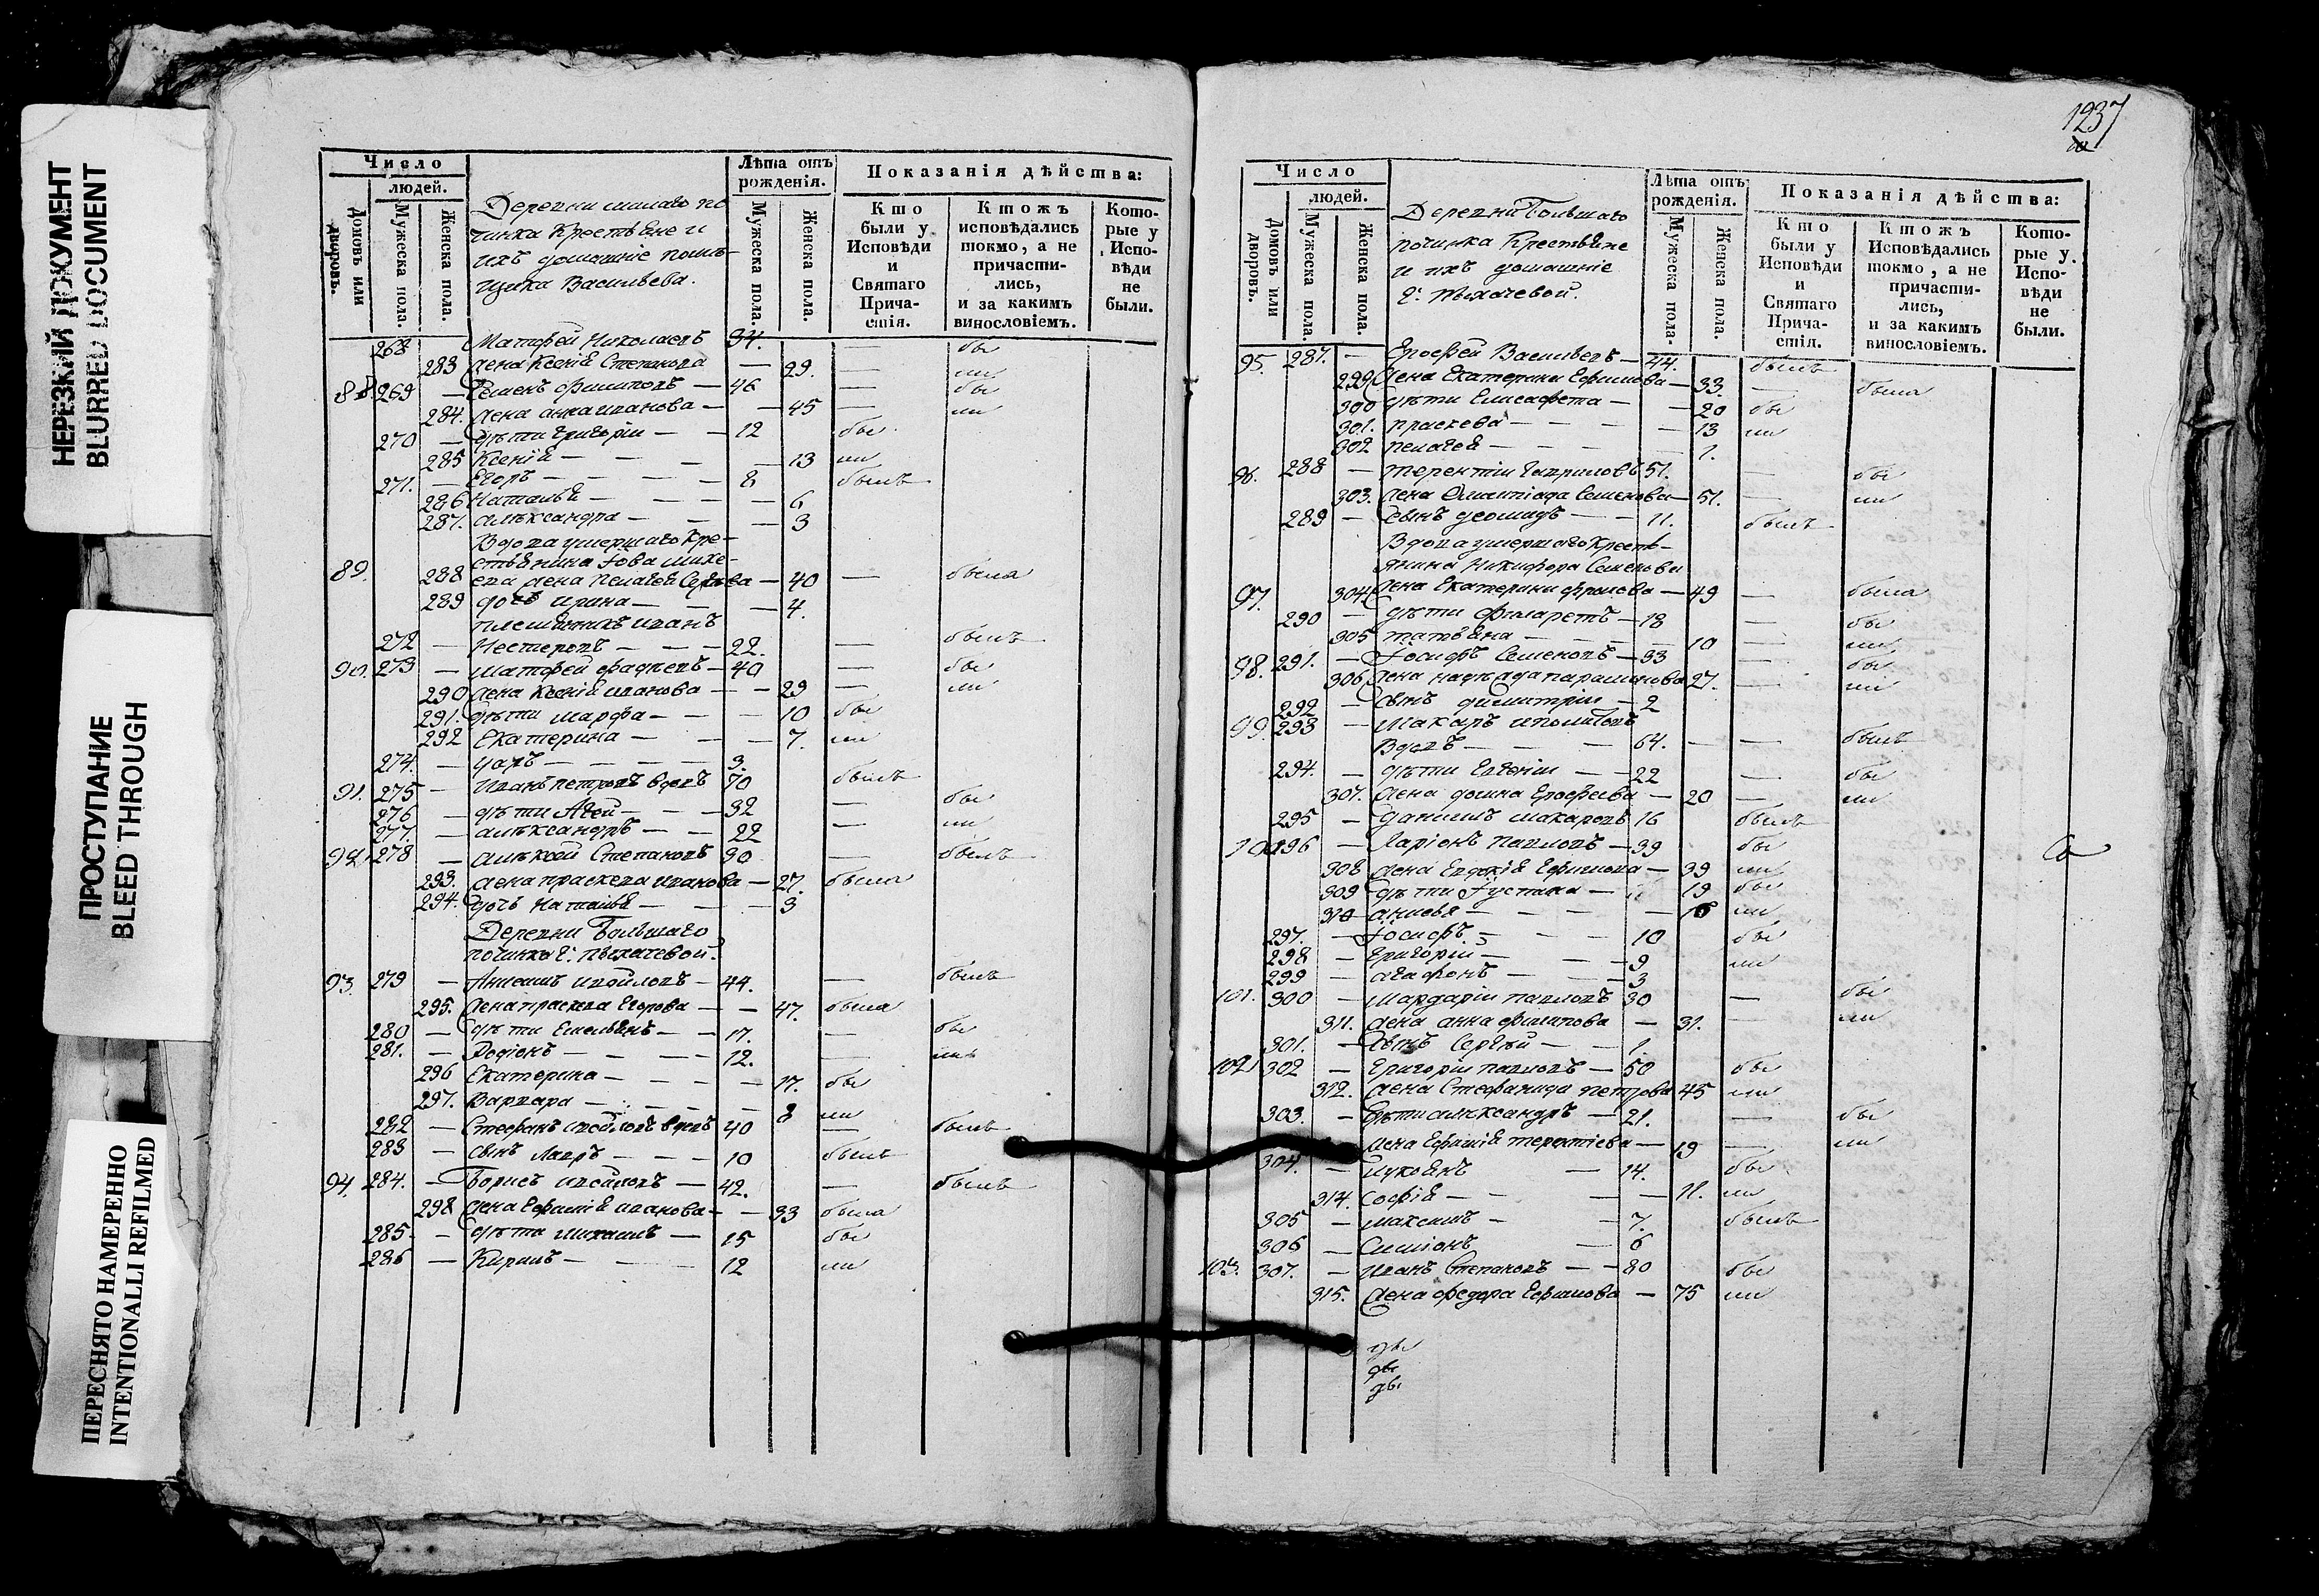 НЕРЕЗКИЙ ДОКУМЕНТ
BLURRED DOCUMENT
ПРОСТУПАНИЕ
BLEED THROUGH
ПЕРЕСНЯТО НАМЕРЕННО
INTENTIONALLI REFILMED
Число
людей.
Домовъ или дворовъ.
Мужеска пола.
Женска пола.
Деревни малаго по
чинка Крестьяне и
ихъ домашніе помѣ-
щика Васильева.
Лѣта отъ рожденія.
Мужеска пола.
Женска пола.
Показанія дѣйства:
Кто были у Исповѣди и Святаго Причастія.
Ктожъ исповѣдались токмо, а не причастились, и за какимъ винословіемъ.
Которые у Исповѣди не были.
268 Матфей Николаевъ 34. — бы
283 жена Ксенія Степанова — 29. — ли
88. 269 — Семенъ Филиповъ — 46 — бы
284. жена анна иванова — — 45 — ли
270 — дѣти григорій — — 12 бы
285 Ксенія — — — 13 ли
271. — Егоръ — — — — 8 былъ
286 Наталья — — — — 6
287. александра — — — 3
Вдова умершаго Кре-
стьянина Іова михе-
89. 288 ева жена пелагея Сергѣева — 40 — была
289 дочь ирина — — — 4.
племянникъ иванъ
272 — Нестеровъ — — — 22. — былъ
90. 273 — матфей фадѣевъ — 40 — бы
290 жена Ксенія иванова — — 29 — ли
291. дѣти марфа — — — 10 бы
292 Екатерина — — — 7. ли
274. — уаръ — — — — 3.
91. 275 — Иванъ петровъ вдовъ 70 былъ
276 — дѣти Агей — — — 32 — бы
277. — александръ — — 22 — ли
92. 278 — алексѣй Степановъ 30 — былъ
293. жена праскева иванова — 27. была
294. дочь наталья — — — 3
Деревни Большаго
починка г: пыхачевой.
93. 279 — Анисимъ измойловъ — 44. — былъ
295. жена праскева Егорова — — 47. была
280 — дѣти Емельянъ — — 17. — бы
281. — Родіонъ — — — 12. — ли
296 Екатерина — — — — 17. бы
297. Варвара — — — — 8 ли
282 — Стефанъ измойловъ вдовъ 40 — былъ
283 — сынъ Лавръ — — — 10 былъ
94. 284. — Борисъ измойловъ — 42. — былъ
298 жена Ефимія иванова — — 33 была
285. — дѣти михаилъ — 15 бы
286 — Кирилъ — — 12 ли
1237
Число
людей.
Домовъ или дворовъ.
Мужеска пола.
Женска пола.
Деревни Большаго
починка Крестьяне
и ихъ домашніе
г: пыхачевой.
Лѣта отъ рожденія.
Мужеска пола.
Женска пола.
Показанія дѣйства:
Кто были у Исповѣди и Святаго Причастія.
Ктожъ Исповѣдались токмо, а не причастились, и за какимъ винословіемъ.
Которые у Исповѣди не были.
95. 287. — Ерофей Васильевъ — 44. былъ
299 жена Екатерина Ефимова — 33. — была
300 дѣти Елисафета — — 20 бы
301. праскева — — — — 13 ли
302 пелагея — — — — 1.
96. 288 — терентій гавриловъ 51. — бы
303. жена Олимпіада Семенова — 51. — ли
289 — сынъ деомидъ — — 11. былъ
Вдова умершаго Кресть-
янина Никифора Семенова
97. 304 жена Екатерина фролова — 49 — была
290 — дѣти филаретъ — 18 — бы
305 татьяна — — — — 10 — ли
98. 291. — Іосифъ Семеновъ — 33 — бы
306 жена надежда парамонова 27. — ли
292 — сынъ димитрій — 2
99. 293 — макаръ иполитовъ
вдовъ — — — 64. — — былъ
294. — дѣти Евгеній — — 22 — бы
307. жена домна Ерофеева — 20 — ли
295 — данилъ макаровъ 16 былъ
100 296 — Ларіонъ павловъ — 39 бы
308 жена Евдокія Ефимова — 39 ли
309 дѣти Іустина — 19 бы
310 анисья — — — — 16 ли
297. — Іосифъ — — — 10 бы
298 — Григорій — — — 9 ли
299 — агафонъ — — — 3
101. 300 — мардарій павловъ 30 — бы
311. жена анна филипова — 31. — ли
301. — сынъ Сергѣй — — 1.
102 302 — Григорій павловъ — 50 бы
312. жена Стефанида петрова 45 ли
303. — дѣти александръ — 21. — бы
жена Ефимія терентіева — 19 — ли
304. — лукьянъ — 14. бы
314. Софія — — — — 11. ли
305 — максимъ — — 7. былъ
306 — Симіонъ — 6
103. 307. — Иванъ Степановъ — — 80 бы
315. жена федора Ефимова — 75 ли